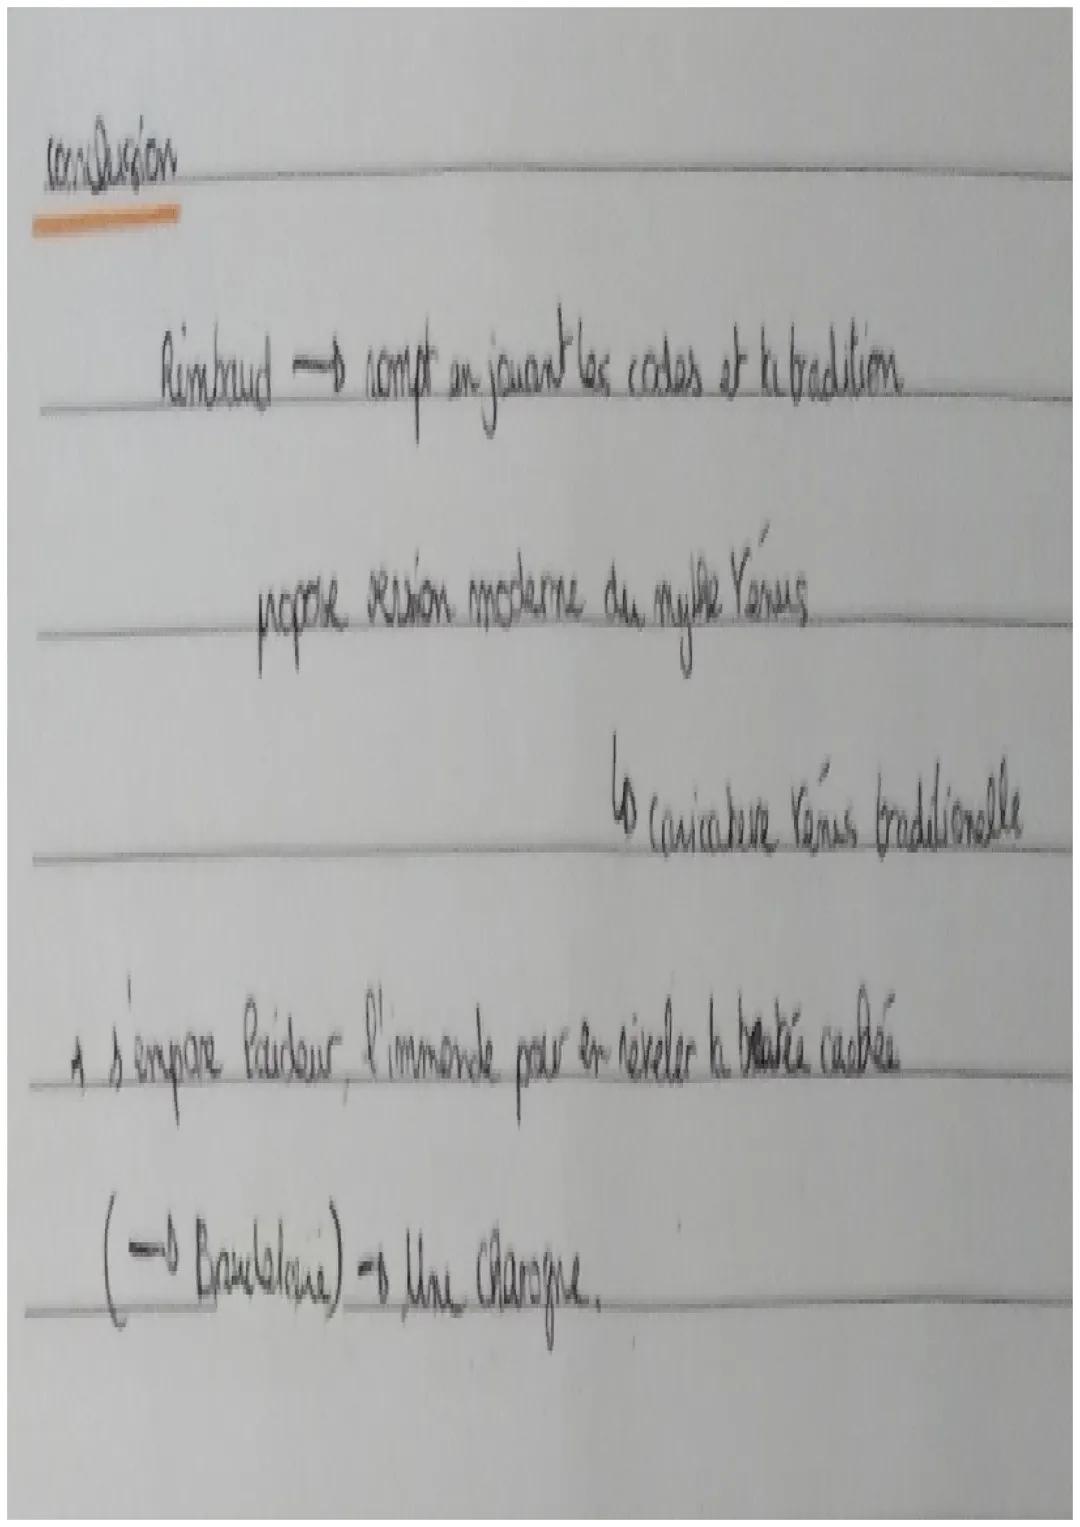 conclusion
Rimbaud → rompt en jouant les codes et la tradition
propose version moderne du mythe Vénus
↳ caricature Vénus traditionelle
s'empare laideur, l'immonde pour en révéler la beauté cachée
(→ Baudelaire) → Une charogne.